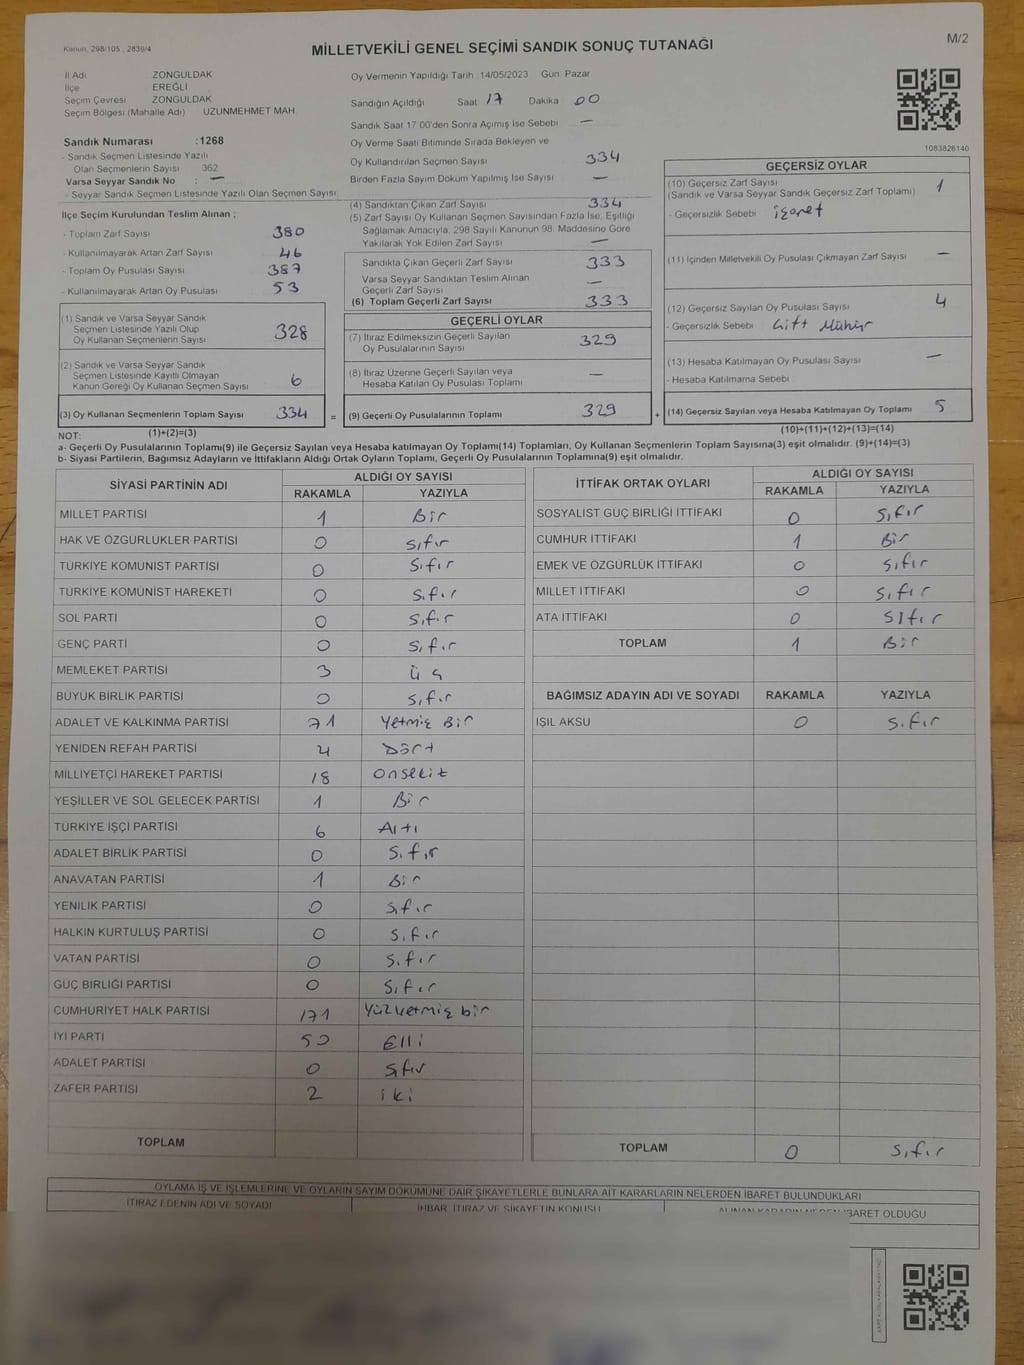 Kanun, 298/105 , 2839/4
MİLLETVEKİLİ GENEL SEÇİMİ SANDIK SONUÇ TUTANAĞI
M/2
İl Adı ZONGULDAK
İlçe EREĞLİ
Seçim Çevresi ZONGULDAK
Seçim Bölgesi (Mahalle Adı) UZUNMEHMET MAH.
Oy Vermenin Yapıldığı Tarih :14/05/2023 Gün: Pazar
Sandığın Açıldığı Saat 17 Dakika 00
Sandık Saat 17:00'den Sonra Açımış İse Sebebi —
Oy Verme Saati Bitiminde Sırada Bekleyen ve
Oy Kullandırılan Seçmen Sayısı 334
Birden Fazla Sayım Döküm Yapılmış İse Sayısı —
1083826140
Sandık Numarası :1268
- Sandık Seçmen Listesinde Yazılı
Olan Seçmenlerin Sayısı 362
Varsa Seyyar Sandık No : —
- Seyyar Sandık Seçmen Listesinde Yazılı Olan Seçmen Sayısı:
İlçe Seçim Kurulundan Teslim Alınan ;
- Toplam Zarf Sayısı 380
- Kullanılmayarak Artan Zarf Sayısı 46
- Toplam Oy Pusulası Sayısı 387
- Kullanılmayarak Artan Oy Pusulası 53
(1) Sandık ve Varsa Seyyar Sandık
Seçmen Listesinde Yazılı Olup
Oy Kullanan Seçmenlerin Sayısı 328
(2) Sandık ve Varsa Seyyar Sandık
Seçmen Listesinde Kayıtlı Olmayan
Kanun Gereği Oy Kullanan Seçmen Sayısı 6
(3) Oy Kullanan Seçmenlerin Toplam Sayısı 334 =
(4) Sandıktan Çıkan Zarf Sayısı 334
(5) Zarf Sayısı Oy Kullanan Seçmen Sayısından Fazla İse, Eşitliği
Sağlamak Amacıyla, 298 Sayılı Kanunun 98. Maddesine Göre
Yakılarak Yok Edilen Zarf Sayısı —
Sandıkta Çıkan Geçerli Zarf Sayısı 333
Varsa Seyyar Sandıktan Teslim Alınan
Geçerli Zarf Sayısı —
(6) Toplam Geçerli Zarf Sayısı 333
GEÇERLİ OYLAR
(7) İtiraz Edilmeksizin Geçerli Sayılan
Oy Pusulalarının Sayısı 329
(8) İtiraz Üzerine Geçerli Sayılan veya
Hesaba Katılan Oy Pusulası Toplamı —
(9) Geçerli Oy Pusulalarının Toplamı 329 +
GEÇERSİZ OYLAR
(10) Geçersiz Zarf Sayısı 1
(Sandık ve Varsa Seyyar Sandık Geçersiz Zarf Toplamı)
- Geçersizlik Sebebi işaret
(11) İçinden Milletvekili Oy Pusulası Çıkmayan Zarf Sayısı —
(12) Geçersiz Sayılan Oy Pusulası Sayısı 4
- Geçersizlik Sebebi Çift Mühür
(13) Hesaba Katılmayan Oy Pusulası Sayısı —
- Hesaba Katılmama Sebebi
(14) Geçersiz Sayılan veya Hesaba Katılmayan Oy Toplamı 5
NOT: (1)+(2)=(3) (10)+(11)+(12)+(13)=(14)
a- Geçerli Oy Pusulalarının Toplamı(9) ile Geçersiz Sayılan veya Hesaba katılmayan Oy Toplamı(14) Toplamları, Oy Kullanan Seçmenlerin Toplam Sayısına(3) eşit olmalıdır. (9)+(14)=(3)
b- Siyasi Partilerin, Bağımsız Adayların ve İttifakların Aldığı Ortak Oyların Toplamı, Geçerli Oy Pusulalarının Toplamına(9) eşit olmalıdır.
SİYASİ PARTİNİN ADI ALDIĞI OY SAYISI
RAKAMLA YAZIYLA
MİLLET PARTİSİ 1 Bir
HAK VE ÖZGÜRLÜKLER PARTİSİ 0 Sıfır
TÜRKİYE KOMÜNİST PARTİSİ 0 Sıfır
TÜRKİYE KOMÜNİST HAREKETİ 0 Sıfır
SOL PARTİ 0 Sıfır
GENÇ PARTİ 0 Sıfır
MEMLEKET PARTİSİ 3 Üç
BÜYÜK BİRLİK PARTİSİ 0 Sıfır
ADALET VE KALKINMA PARTİSİ 71 Yetmiş Bir
YENİDEN REFAH PARTİSİ 4 Dört
MİLLİYETÇİ HAREKET PARTİSİ 18 onsekiz
YEŞİLLER VE SOL GELECEK PARTİSİ 1 Bir
TÜRKİYE İŞÇİ PARTİSİ 6 Altı
ADALET BİRLİK PARTİSİ 0 Sıfır
ANAVATAN PARTİSİ 1 Bir
YENİLİK PARTİSİ 0 Sıfır
HALKIN KURTULUŞ PARTİSİ 0 Sıfır
VATAN PARTİSİ 0 Sıfır
GÜÇ BİRLİĞİ PARTİSİ 0 Sıfır
CUMHURİYET HALK PARTİSİ 171 Yüzyetmiş bir
İYİ PARTİ 50 Elli
ADALET PARTİSİ 0 Sıfır
ZAFER PARTİSİ 2 iki
TOPLAM
İTTİFAK ORTAK OYLARI ALDIĞI OY SAYISI
RAKAMLA YAZIYLA
SOSYALİST GÜÇ BİRLİĞİ İTTİFAKI 0 Sıfır
CUMHUR İTTİFAKI 1 Bir
EMEK VE ÖZGÜRLÜK İTTİFAKI 0 Sıfır
MİLLET İTTİFAKI 0 Sıfır
ATA İTTİFAKI 0 Sıfır
TOPLAM 1 Bir
BAĞIMSIZ ADAYIN ADI VE SOYADI RAKAMLA YAZIYLA
IŞIL AKSU 0 Sıfır
TOPLAM 0 Sıfır
OYLAMA İŞ VE İŞLEMLERİNE VE OYLARIN SAYIM DÖKÜMÜNE DAİR ŞİKAYETLERLE BUNLARA AİT KARARLARIN NELERDEN İBARET BULUNDUKLARI
İTİRAZ EDENİN ADI VE SOYADI İHBAR, İTİRAZ VE ŞİKAYETİN KONUSU ALINAN KARARIN NEDEN İBARET OLDUĞU